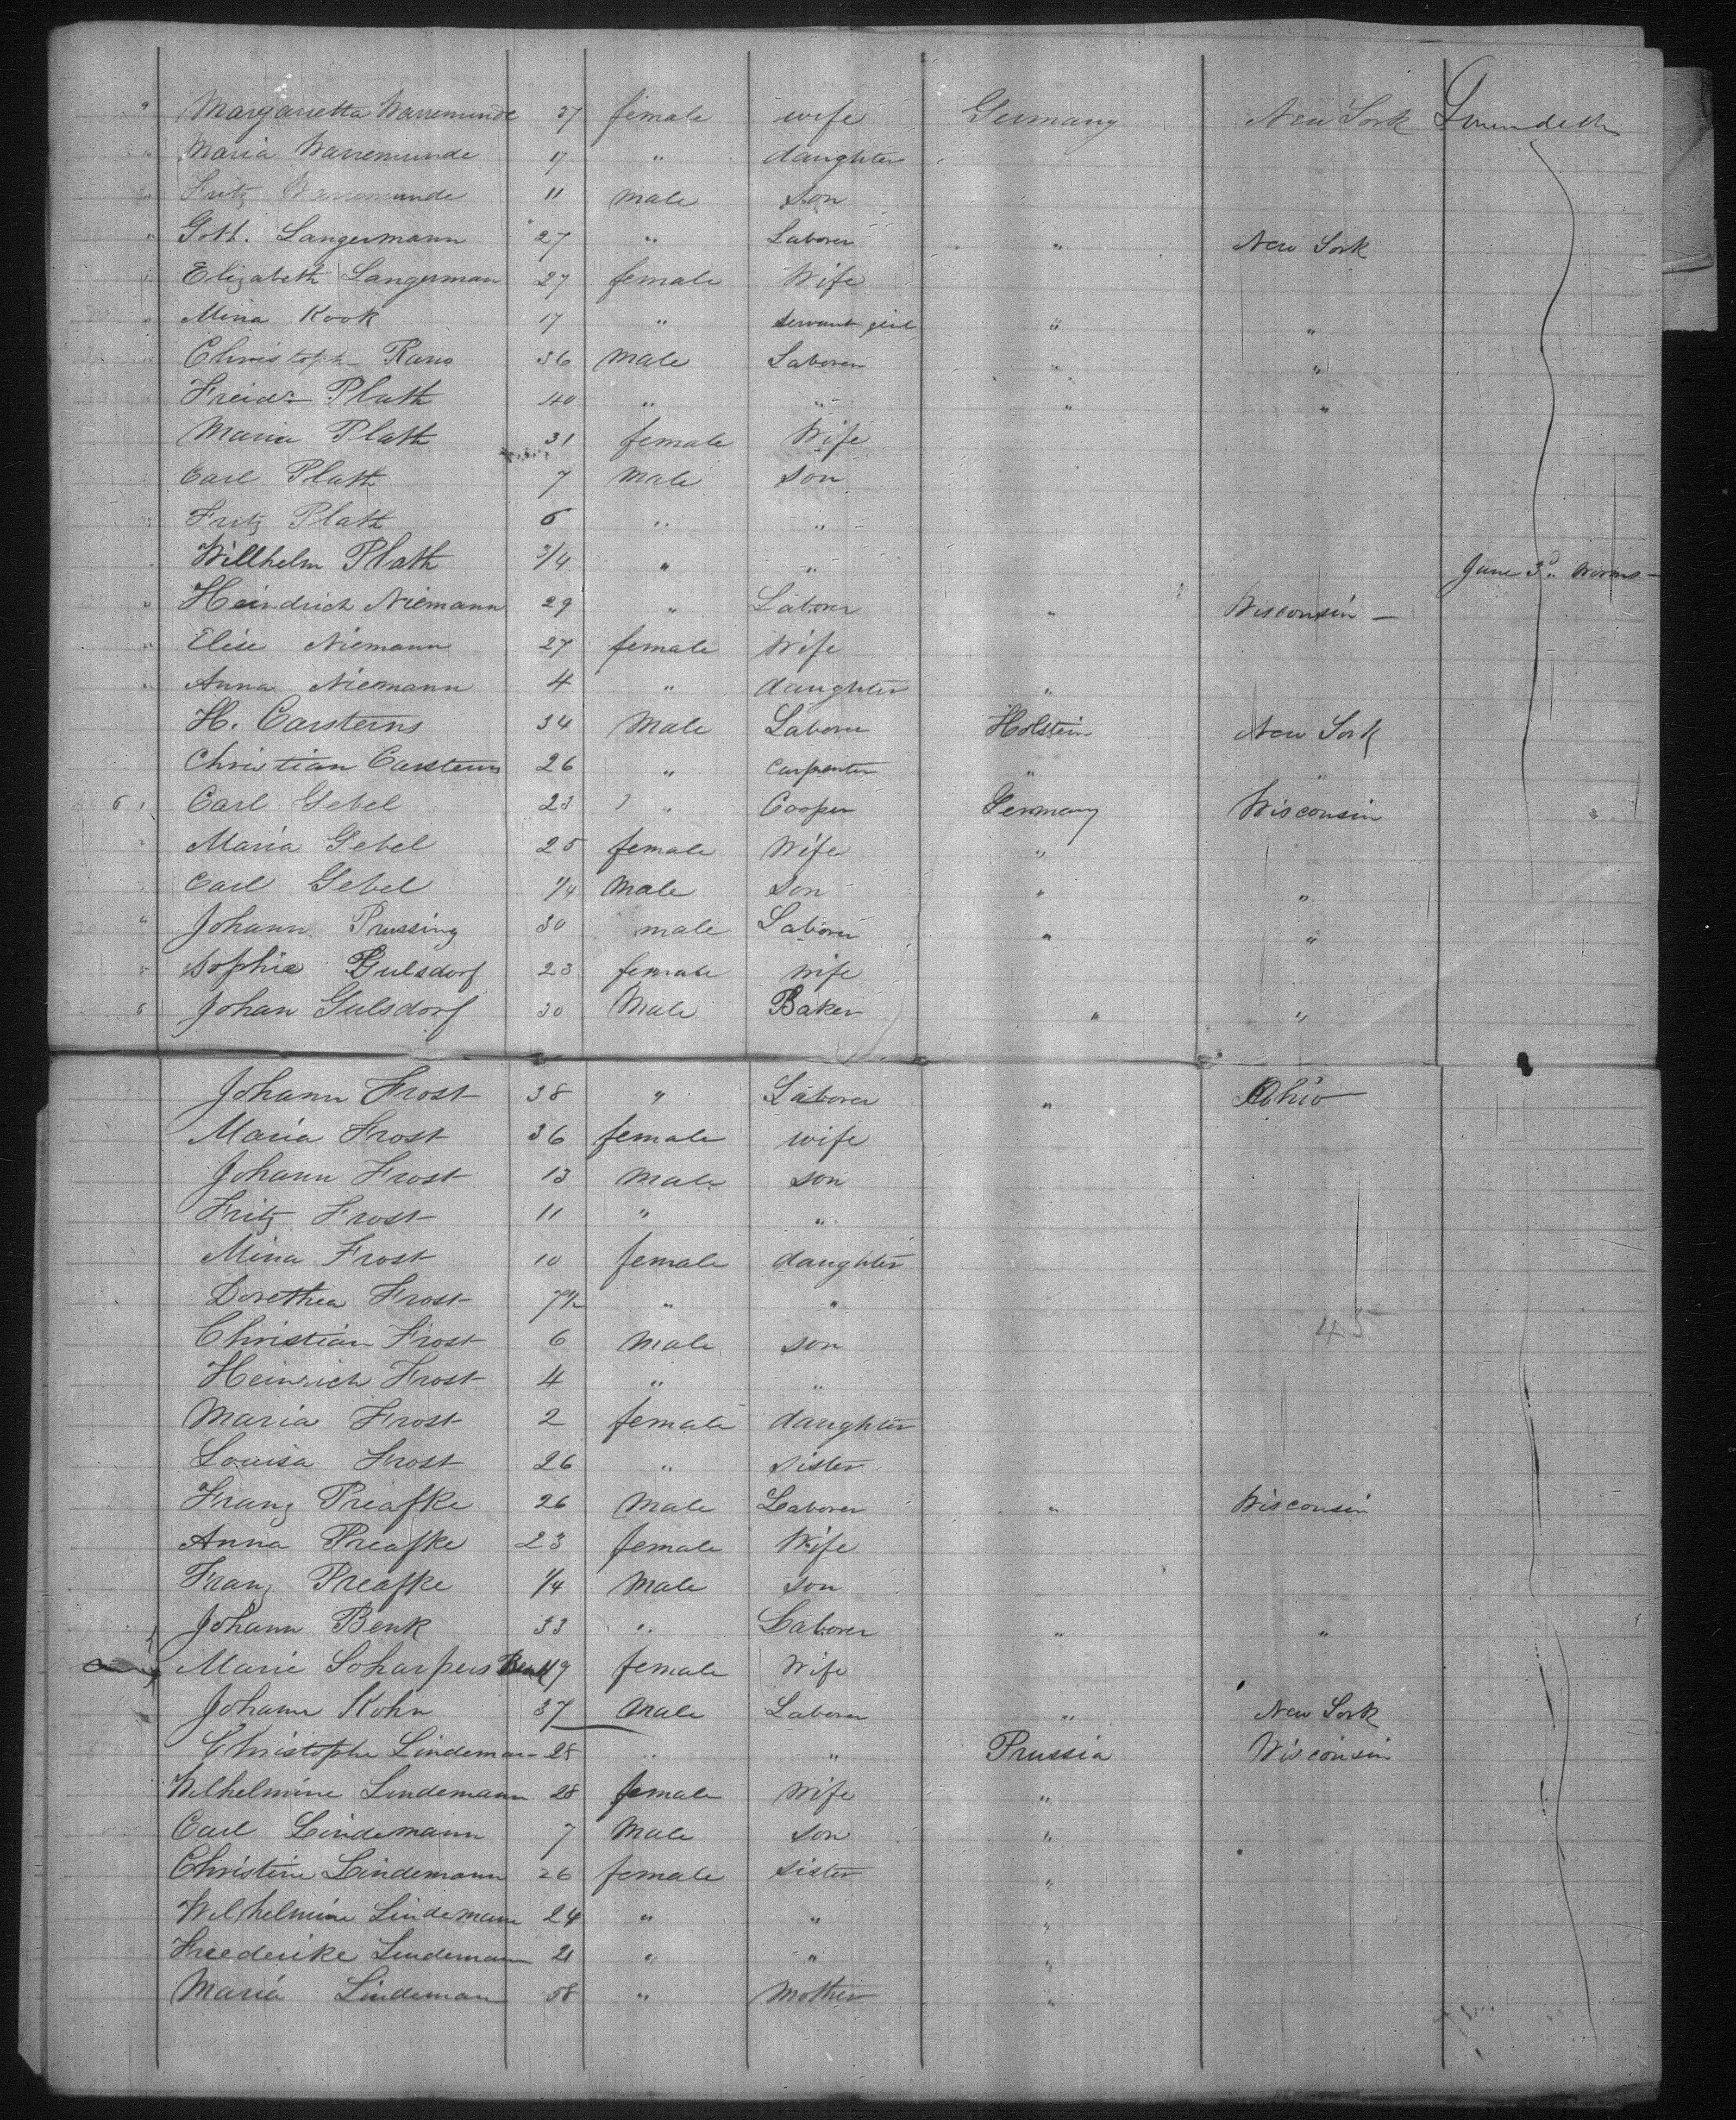 " Margarietta Warremunde 37 female wife Germany New York
" Maria Warremunde 17 " daughter
" Fritz Warremunde 11 male son
" Gott. Langermann 27 " Laborer " New York
Elizabeth Langerman 27 female Wife
Mina Kook 17 " servant girl " "
Christoph 36 male Laborer " "
Freidr Plath 40 " " " "
Maria Plath 31 female Wife
Carl Plath 7 Male son
Fritz Plath 6 " "
Willhelm Plath 3/4 " " June 3d
" Heindrich Niemann 29 " Laborer " Wisconsin —
" Elise Niemann 27 female Wife
" Anna Niemann 4 " daughter "
H. Carsterns 34 Male Laborer Holstein New York
Christian Carsterns 26 " Carpenter " "
6 1 Carl Gebel 23 " Cooper Germany Wisconsin
2 Maria Gebel 25 female Wife " "
Carl Gebel 1/4 Male Son " "
4 Johann Prussing 30 male Laborer " "
5 Sophie Gulsdorf 23 female wife
6 Johan Gulsdorf 30 Male Baker " "
Johann Frost 38 " Laborer " Ohio
Maria Frost 36 female wife
Johann Frost 13 Male son
Fritz Frost 11 " "
Mina Frost 10 female daughter
Dorethea Frost 7 1/2 " "
Christian Frost 6 Male son 45
Heinrich Frost 4 " "
Maria Frost 2 female daughter
Louisa Frost 26 " sister
Franz Preafke 26 Male Laborer " Wisconsin
Anna Preafke 23 female Wife
Franz Preafke 1/4 Male son
Johann Benk 33 " Laborer " "
Marie Scharpers Benk 49 female Wife
Johann Kohn 37 Male Laborer " New York
Christophe Lindeman 28 " " Prussia Wisconsin
Wilhelmine Lindemann 28 female Wife "
Carl Lindemann 7 Male son "
Christine Lindemann 26 female sister "
Wilhelmine Lindemann 24 " " "
Freederike Lindeman 21 " " "
Maria Lindeman 58 " Mother "